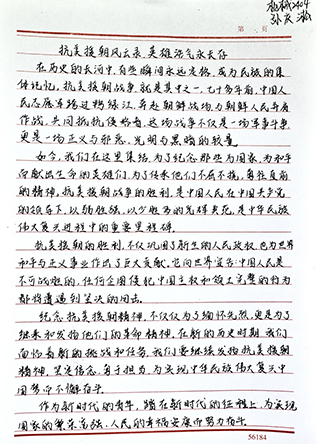 机械2404
第 页
抗美援朝风云录,英雄浩气永长存
在历史的长河中,有些瞬间永远定格,成为民族的集
体记忆。抗美援朝战争,就是其中之一。七十多年前,中国人
民志愿军跨过鸭绿江,奔赴朝鲜战场与朝鲜人民并肩
作战,共同抗抗侵略者。这场战争不仅是一场军事斗争
更是一场正义与邪恶、光明与黑暗的较量。
如今,我们在这里集结,为了纪念那些为国家、为和平
而献出生命的英雄们,为了传承他们不屈不挠,勇往直前
的精神。抗美援朝战争的胜利,是中国人民在中国共产党
的领导下,以弱胜强,以少胜多的光辉典范,是中华民族
伟大复兴进程中的重要里程碑。
抗美援朝的胜利,不仅巩固了新生的人民政权,也为世界
和平与正义事业作出了巨大贡献。它向世界宣告:中国人民是
不可战胜的,任何企图侵犯中国主权和领土完整的行为
都将遭遇到坚决的回击。
纪念抗美援朝精神,不仅仅为了缅怀先烈,更是为了
继承和发扬他们的革命精神。在新的历史时期,我们
面临着新的挑战和任务。我们要继续发扬抗美援朝
精神,坚定信念,勇于担当,为实现中华民族伟大复兴中
国梦而不懈奋斗。
作为新时代的青年,踏在新时代的征程上,为实现
国家的繁荣富强、人民的幸福安康而努力奋斗。
56184